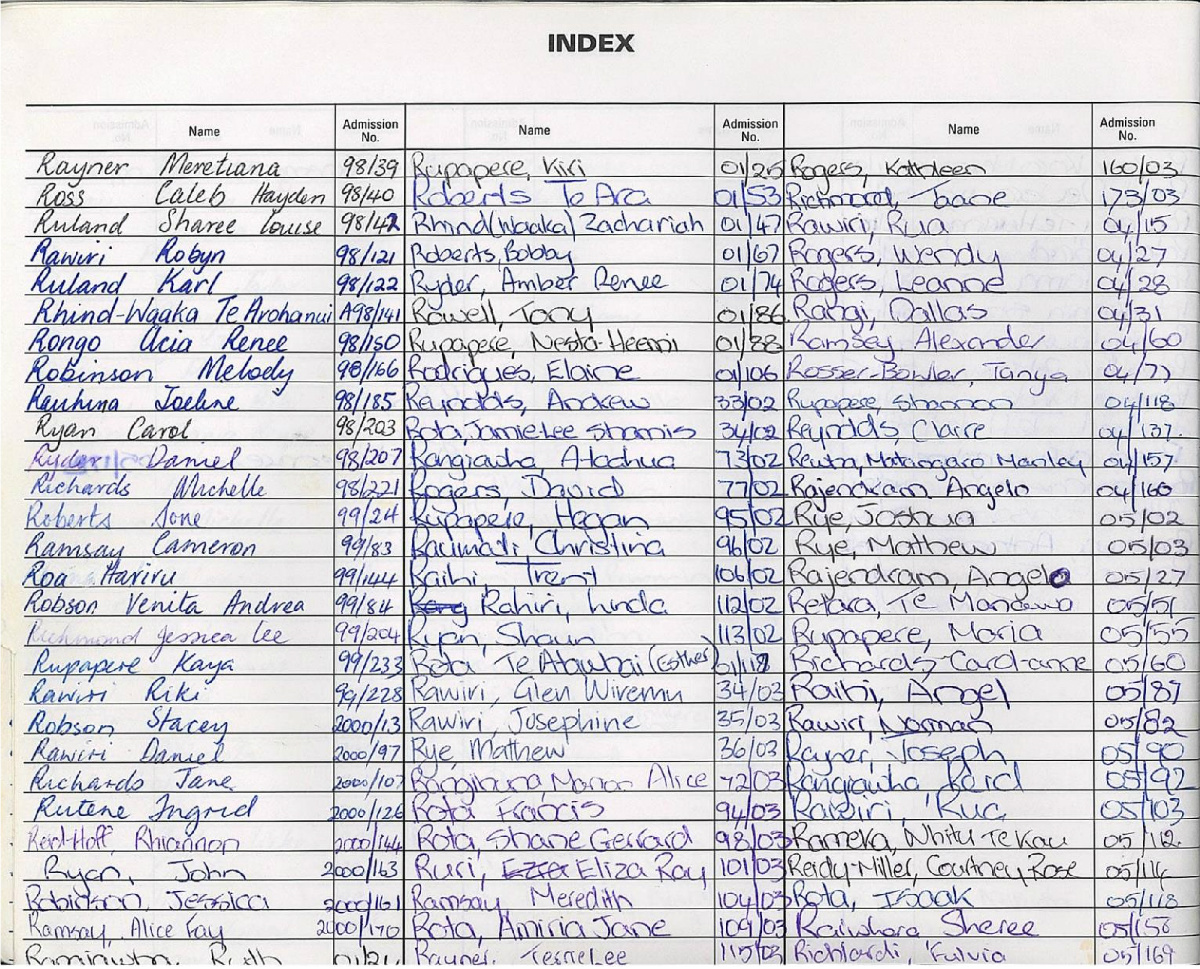 INDEX
Name Admission No. Name Admission No. Name Admission No.
Rayner Meretiana 98/39 Rupapere, Kiri 01/25 Rogers, Kathleen 160/03
Ross Caleb Hayden 98/40 Roberts Te Ara 01/53 Richmond, Taane 173/03
Ruland Sharee Louise 98/42 Rhind(Waaka) Zachariah 01/47 Rawiri, Rua 04/15
Rawiri Robyn 98/121 Roberts, Bobby 01/67 Rogers, Wendy 04/27
Ruland Karl 98/122 Ryder, Amber Renee 01/74 Rogers, Leanne 04/28
Rhind-Waaka Te Arohanui A98/141 Rowell, Tony 01/86 Rangi, Dallas 04/31
Rongo Acia Renee 98/150 Rupapere, Nesta-Heemi 01/88 Ramsey, Alexander 04/60
Robinson Melody 98/166 Rodrigues, Elaine 01/106 Rosser-Bowler, Tanya 04/77
Rauhina Joeline 98/185 Reynolds, Andrew 33/02 Rupapere, Shannon 04/118
Ryan Carol 98/203 Rota, JamieLee Shamis 34/02 Reynolds, Claire 04/137
Ryder Daniel 98/207 Rangiawha, 73/02 Rewha, Manley 04/157
Richards Michelle 98/221 Rogers, David 77/02 Rajendram Angelo 04/160
Roberts Jone 99/24 Rupapere, Hogan 95/02 Rye, Joshua 05/02
Ramsay Cameron 99/83 Raumati, Christina 96/02 Rye, Mathew 05/03
Roa Haviru 99/144 Raihi, Trent 106/02 Rajendram, Angelo 05/27
Robson Venita Andrea 99/84 Rahiri, Linda 112/02 Retara, Te Manawa 05/51
Richmond Jessica Lee 99/204 Ryan, Shaun 113/02 Rupapere, Maria 05/55
Rupapere Kaya 99/233 Rota, Te Atawhai (Esther) 01/18 Richards-Card-anne 05/60
Rawiri Riki 99/228 Rawiri, Glen Wiremu 34/03 Raihi, Angel 05/87
Robson Stacey 2000/13 Rawiri, Josephine 35/03 Rawiri, Norman 05/82
Rawiri Daniel 2000/97 Rye, Mathew 36/03 Rayner, Joseph 05/90
Richards Jane 2000/107 Marion Alice 72/03 Rangiawha Reird 05/92
Rutene Ingrid 2000/126 Rota Francis 94/03 Rawiri, Rua 05/103
Reid-Hoff, Rhiannon 2000/144 Rota, Shane Gerrard 98/03 Rameka, Whitu Te Kau 05/112
Ryan, John 2000/163 Ruri, Eliza Ray 101/03 Reidy-Miller, Courtney Rose 05/114
Robinson, Jessica 2000/161 Ramsay Meredith 104/03 Rota, Isaak 05/118
Ramsay, Alice Fay 2000/170 Rota, Amiria Jane 109/03 Raiwhara Sheree 05/158
Rangiawha, Ruth 01/21 Rayner, TerreLee 115/03 Richlardi, Fulvia 05/169